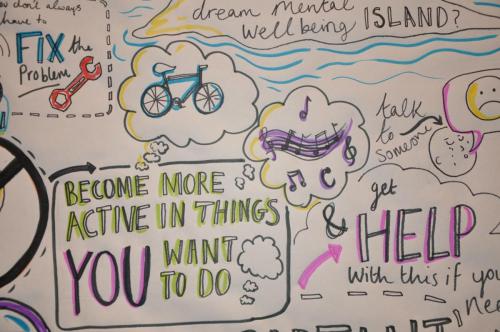 dream mental
wellbeing ISLAND?
you don't always
have to
FIX the
Problem
talk
to
someone
BECOME MORE
ACTIVE IN THINGS
YOU WANT
TO DO
get
& HELP
With this if you
need